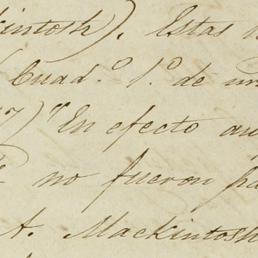 kintosh). Estas
Cuad.º 1.º de un
7) "En efecto au
no fueron pa
A. Mackintosh